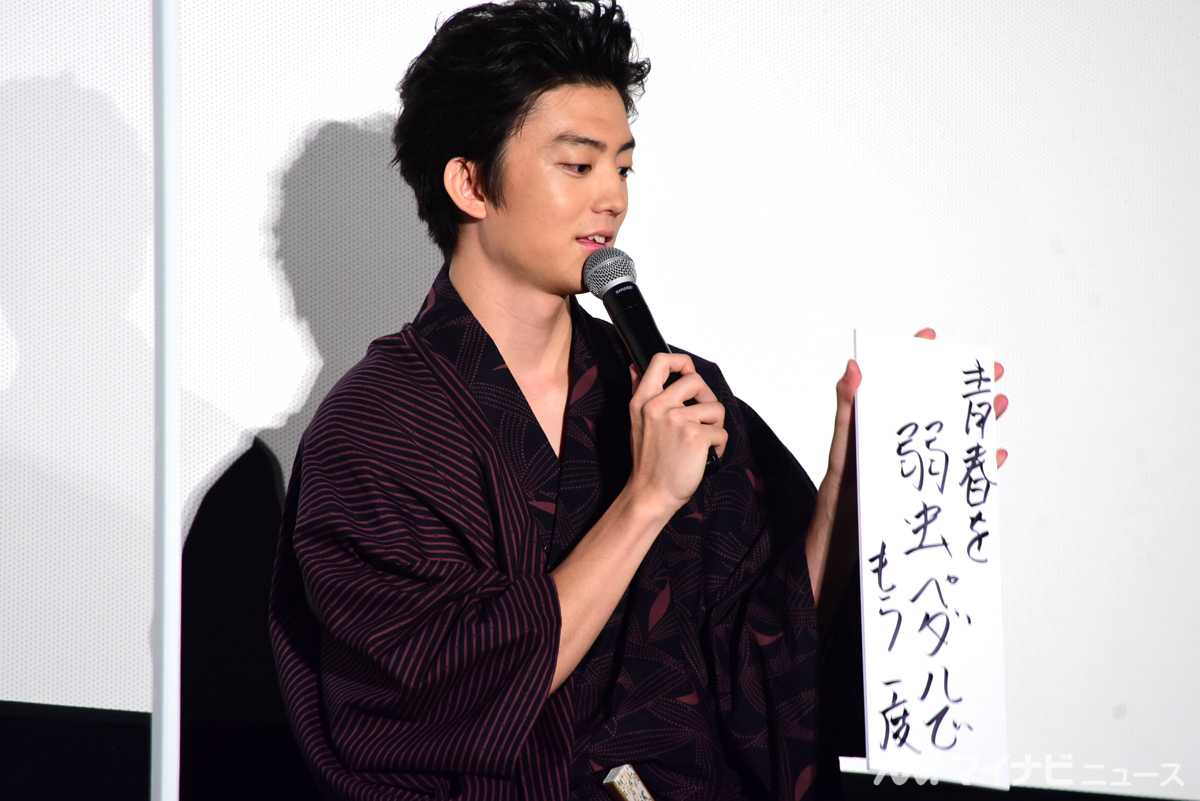 青春を
弱虫ペダルで
もう一度
マイナビニュース